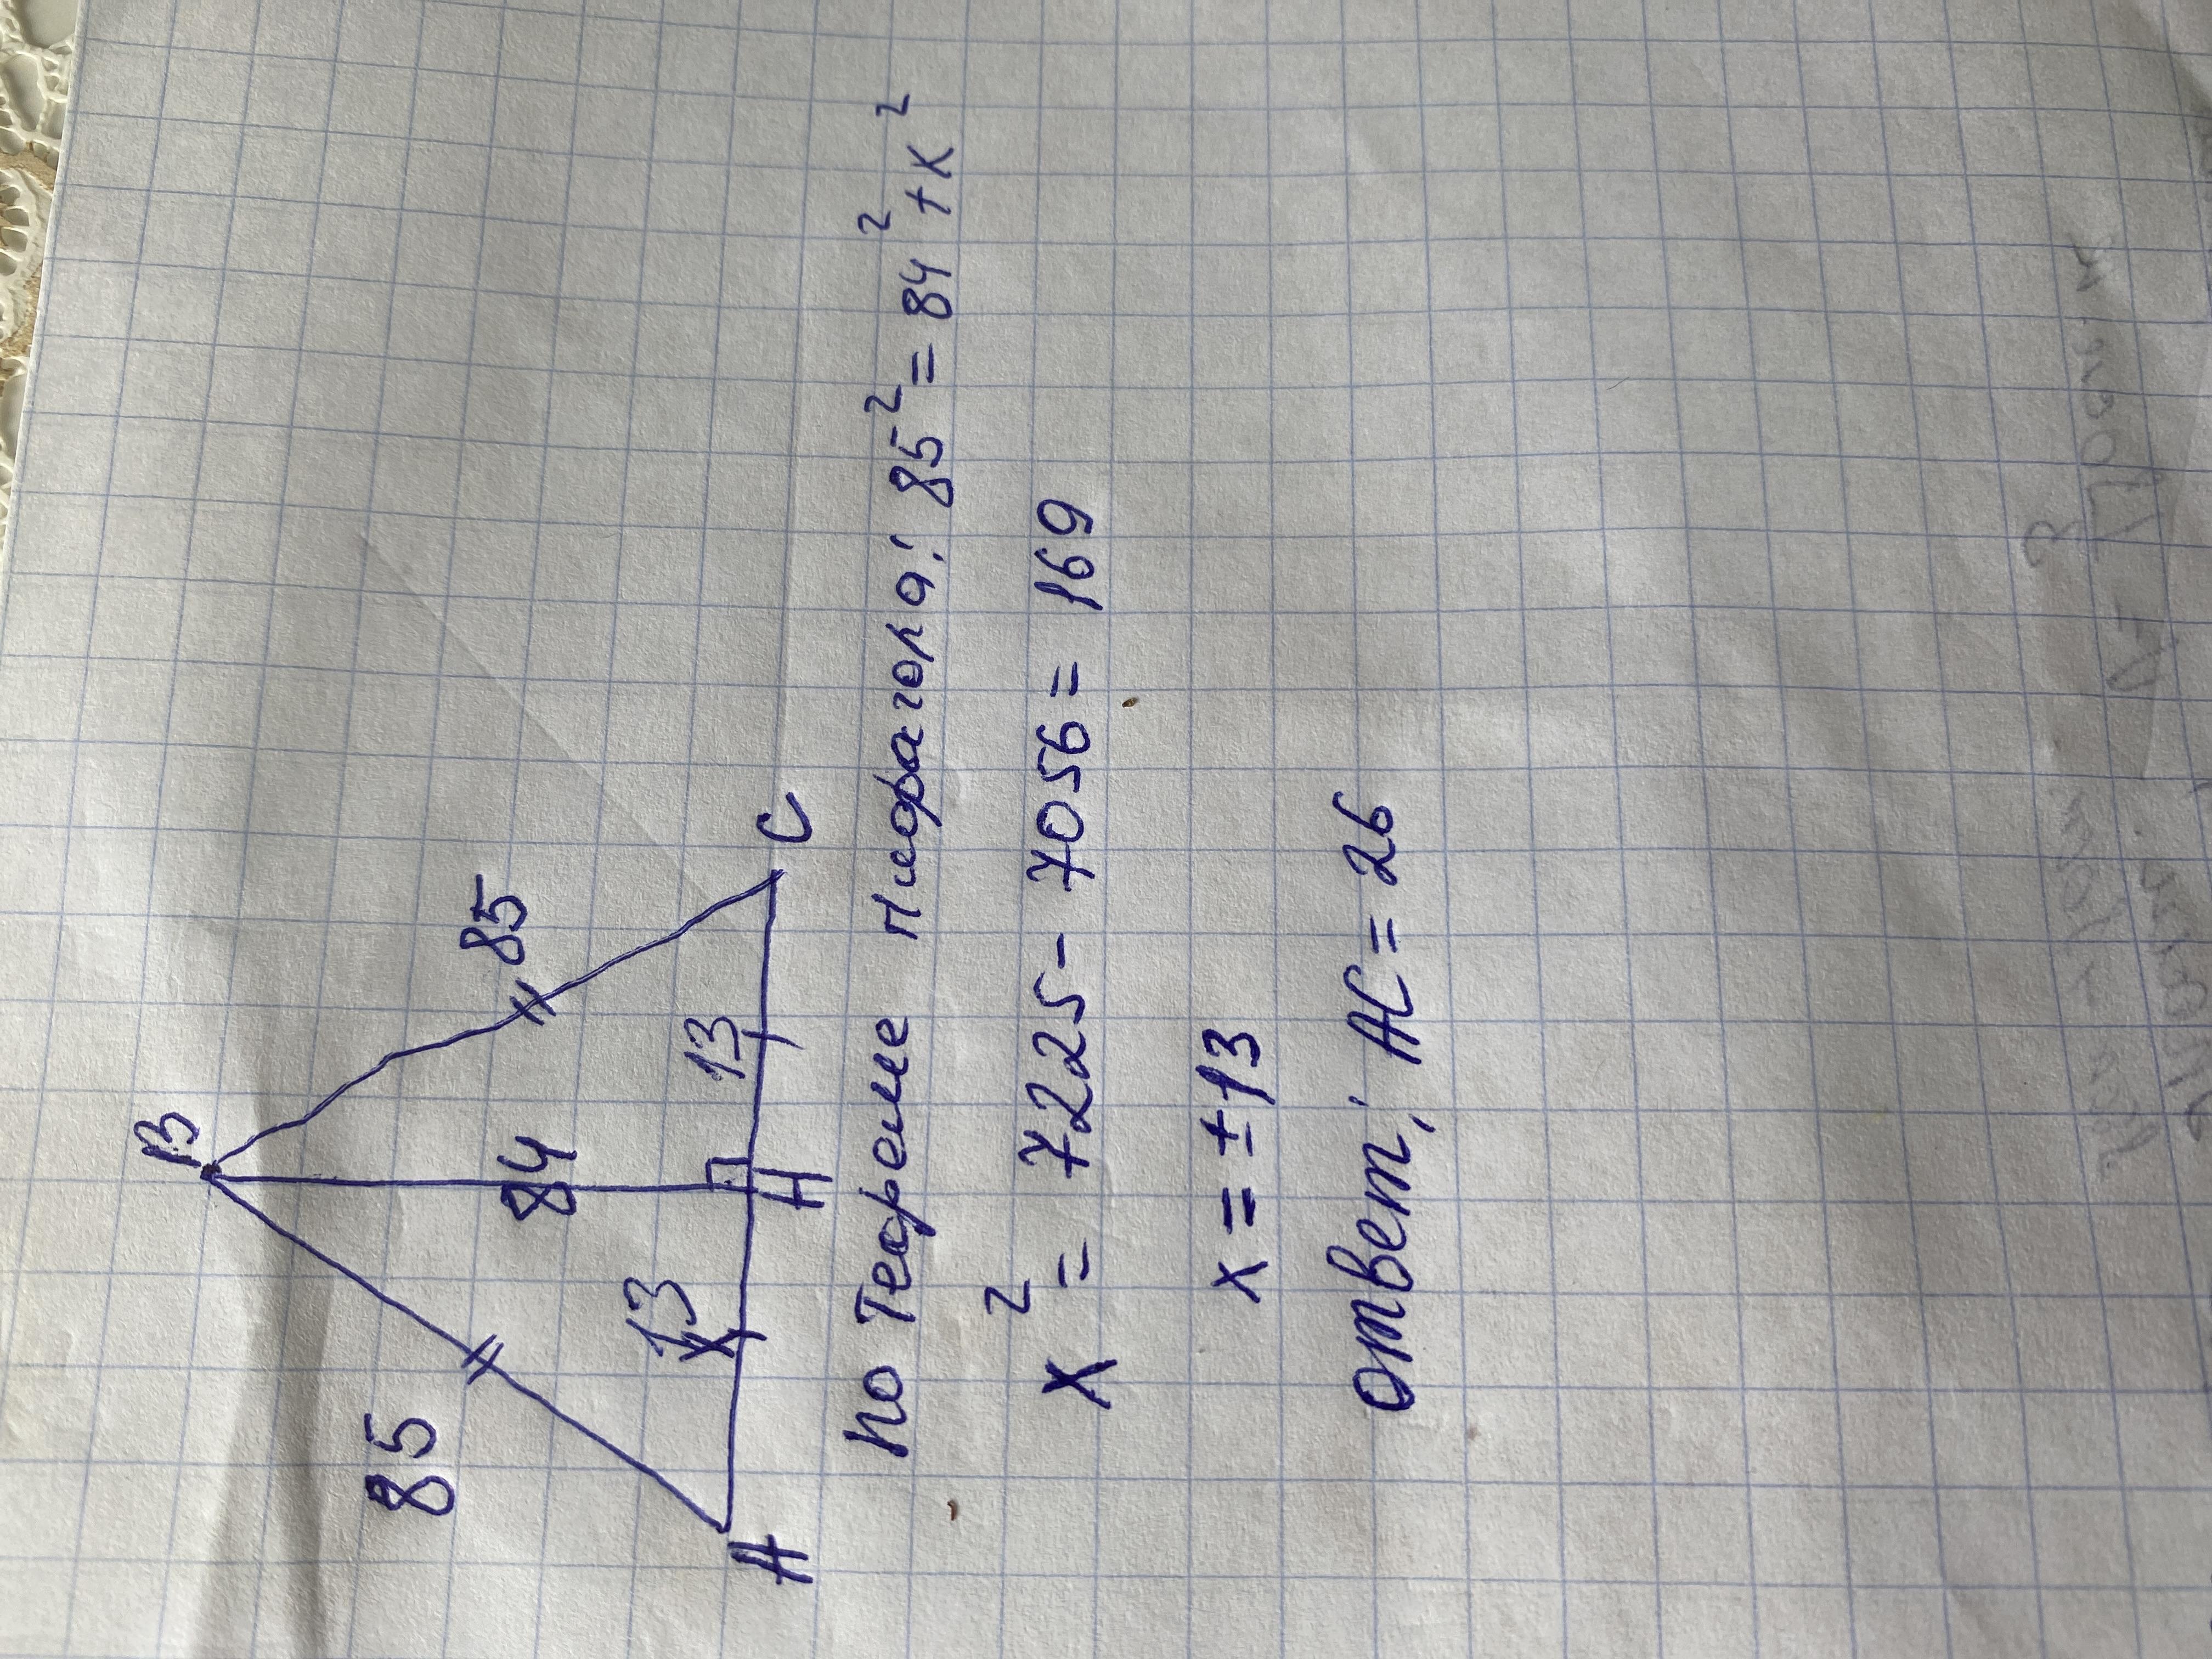 B
85
84
85
13
13
x
A
H
C
По Теореме Пифагора: 85² = 84² + x²
x² = 7225 - 7056 = 169
x = ±13
Ответ: AC = 26